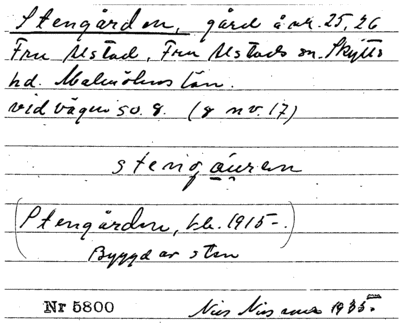 Stengården, gård å nr. 25, 26
Fru Alstad, Fru Alstads sn. Skytts
hd. Malmöhus län.
vid vägen sv. 8. (8 nv. 17)
stengåuren
(Stengården, bb. 1915-.)
Byggd av sten
Nr 5800 Nils Nilsson 1935.